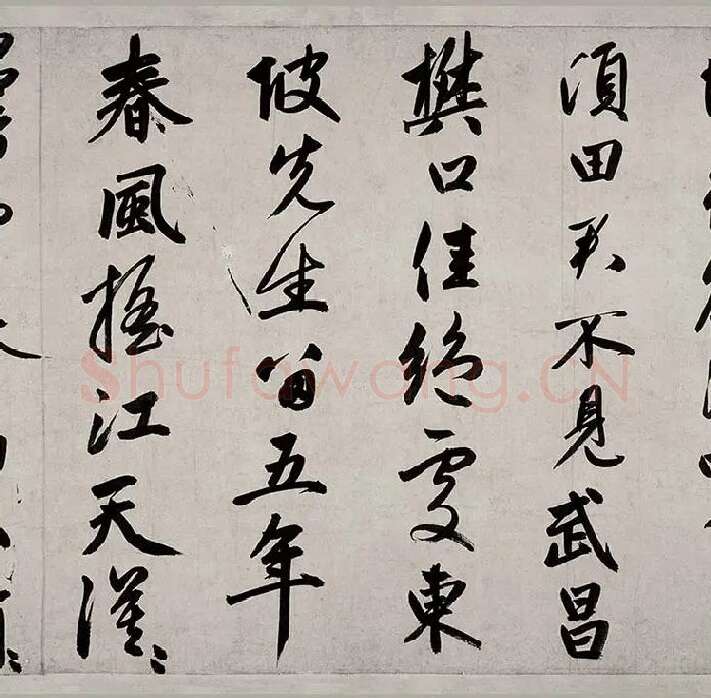 頃田君不見武昌
樊口佳絕處東
坡先生留五年
春風搖江天漠〻
Shufawang.CN